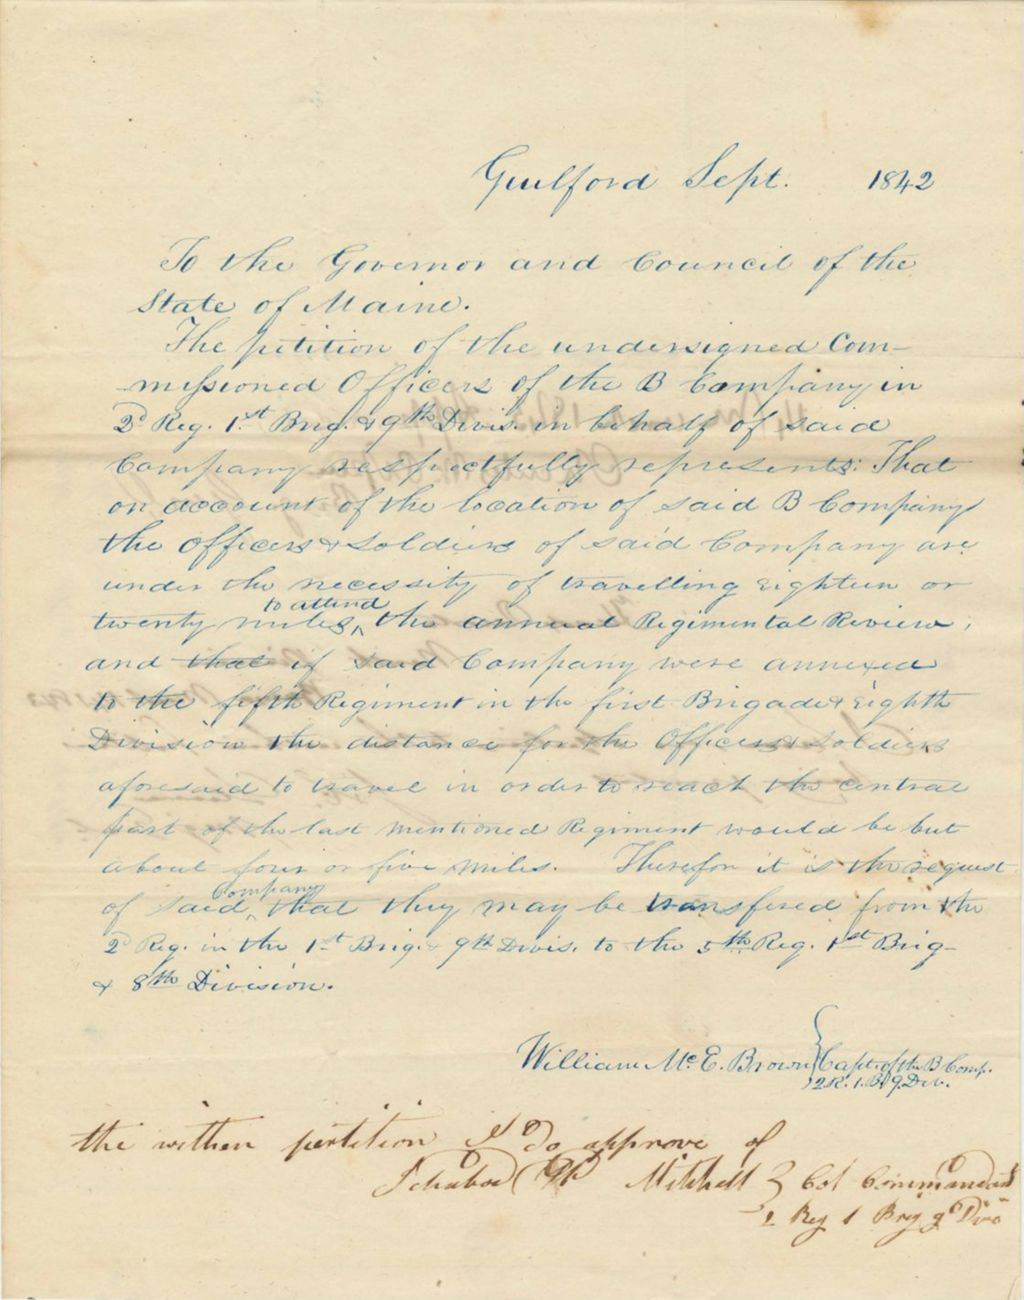 Guilford Sept. 1842
To the Governor and Council of the
State of Maine.
The petition of the undersigned Com-
missioned Officers of the B Company in
2d Reg. 1.st Brig. & 9th Divis. in behalf of said
Company respectfully represents: That
on account of the location of said B Company
the Officers & Soldiers of said Company are
under the necessity of travelling Eighteen or
to attend
twenty miles ^ the annual Regimental Review;
and that if said Company were annexed
to the fifth Regiment in the first Brigade & Eighth
Division the distance for the Officers & Soldiers
aforesaid to travel in order to reach the central
part of the last mentioned Regiment would be but
about four or five miles. Therefor it is the request
Company
of said ^ that they may be transfered from the
2d Reg. in the 1st Brig. & 9th Divis. to the 5th Reg. 1st Brig-
& 8th Division.
William Mc. E. Brown } Capt. of the B Comp.
2 R. 1. B 9. Div.
the within pertition I Do approve of
Ichabod Mitchell } Col Commandant
2 Reg 1 Brig 9 Divo